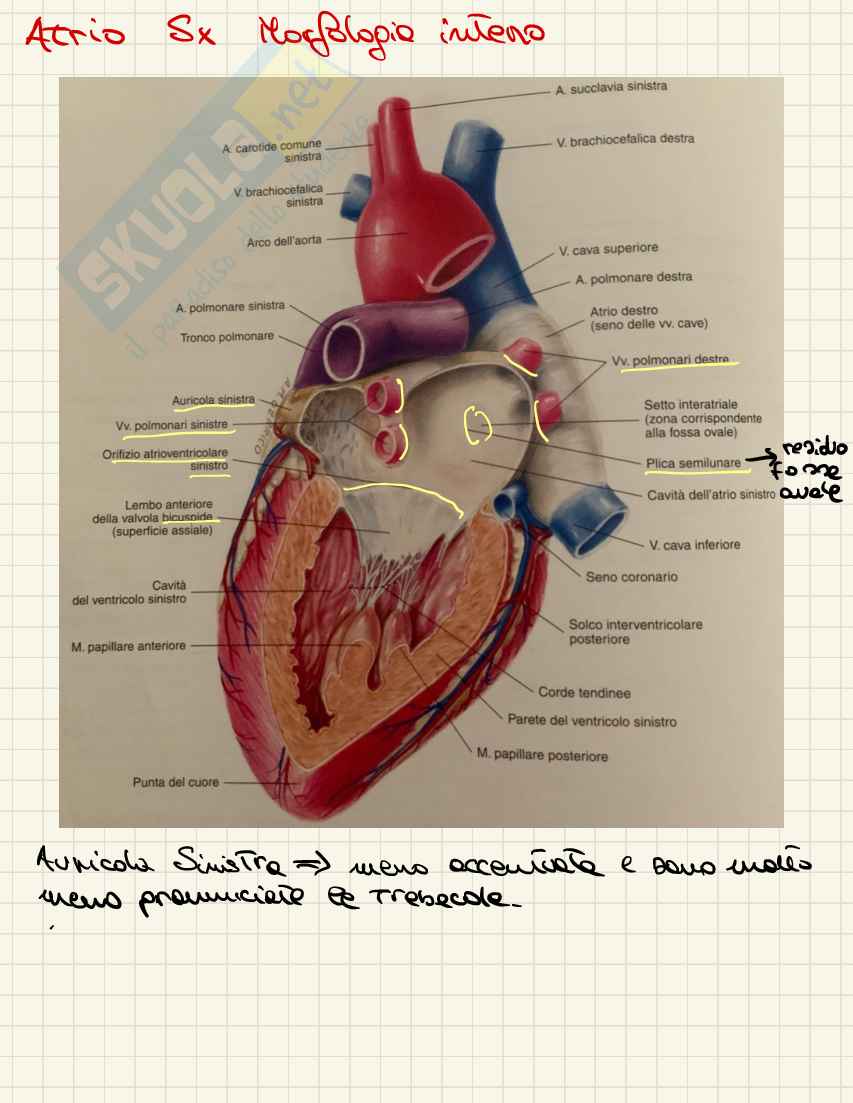 Atrio Sx Morfologia interno
SKUOLA.net
il paradiso dello studente
A. succlavia sinistra
A. carotide comune
sinistra
V. brachiocefalica destra
V. brachiocefalica
sinistra
Arco dell'aorta
V. cava superiore
A. polmonare destra
A. polmonare sinistra
Atrio destro
(seno delle vv. cave)
Tronco polmonare
Vv. polmonari destre
Auricola sinistra
Setto interatriale
(zona corrispondente
alla fossa ovale)
Vv. polmonari sinistre
Orifizio atrioventricolare
sinistro
Plica semilunare
residuo
fossa
ovale
Cavità dell'atrio sinistro
Lembo anteriore
della valvola bicuspide
(superficie assiale)
V. cava inferiore
Seno coronario
Cavità
del ventricolo sinistro
Solco interventricolare
posteriore
M. papillare anteriore
Corde tendinee
Parete del ventricolo sinistro
M. papillare posteriore
Punta del cuore
Auricola Sinistra => meno accentuata e sono molto
meno pronunciate le trabecole